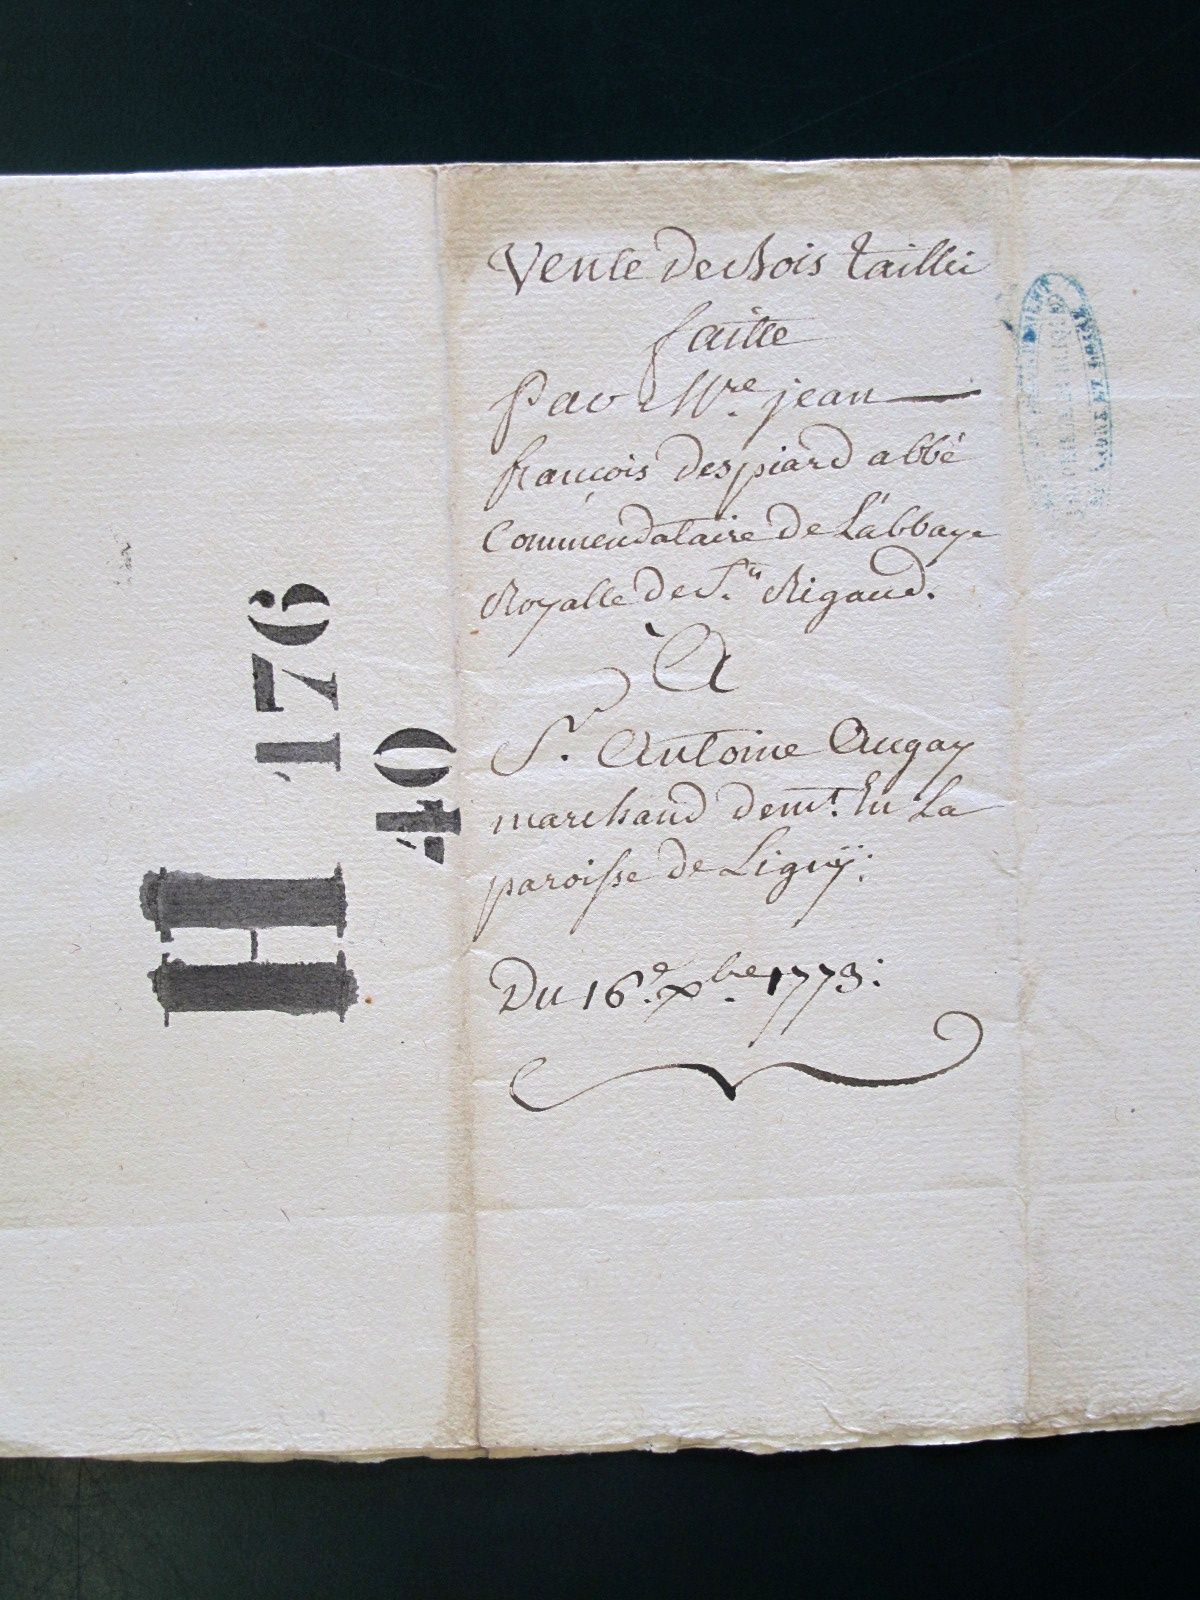 Vente De Bois taillé
faitte
Par Mre. jean
françois despiard abbé
Commendataire de L'abbaye
Royalle de St. Rigaud.
A
Sr. Antoine Augay
marchand demt. En La
paroisse de Ligny:
Du 16e. Xbre. 1773:
H 176
40